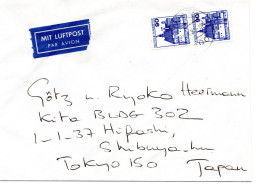 MIT LUFTPOST
PAR AVION
90
90
Götz u. Ryoko Heermann
Kita BLDG 302
1-1-37 Higashi,
Shibuya-ku
Tokyo 150 Japan